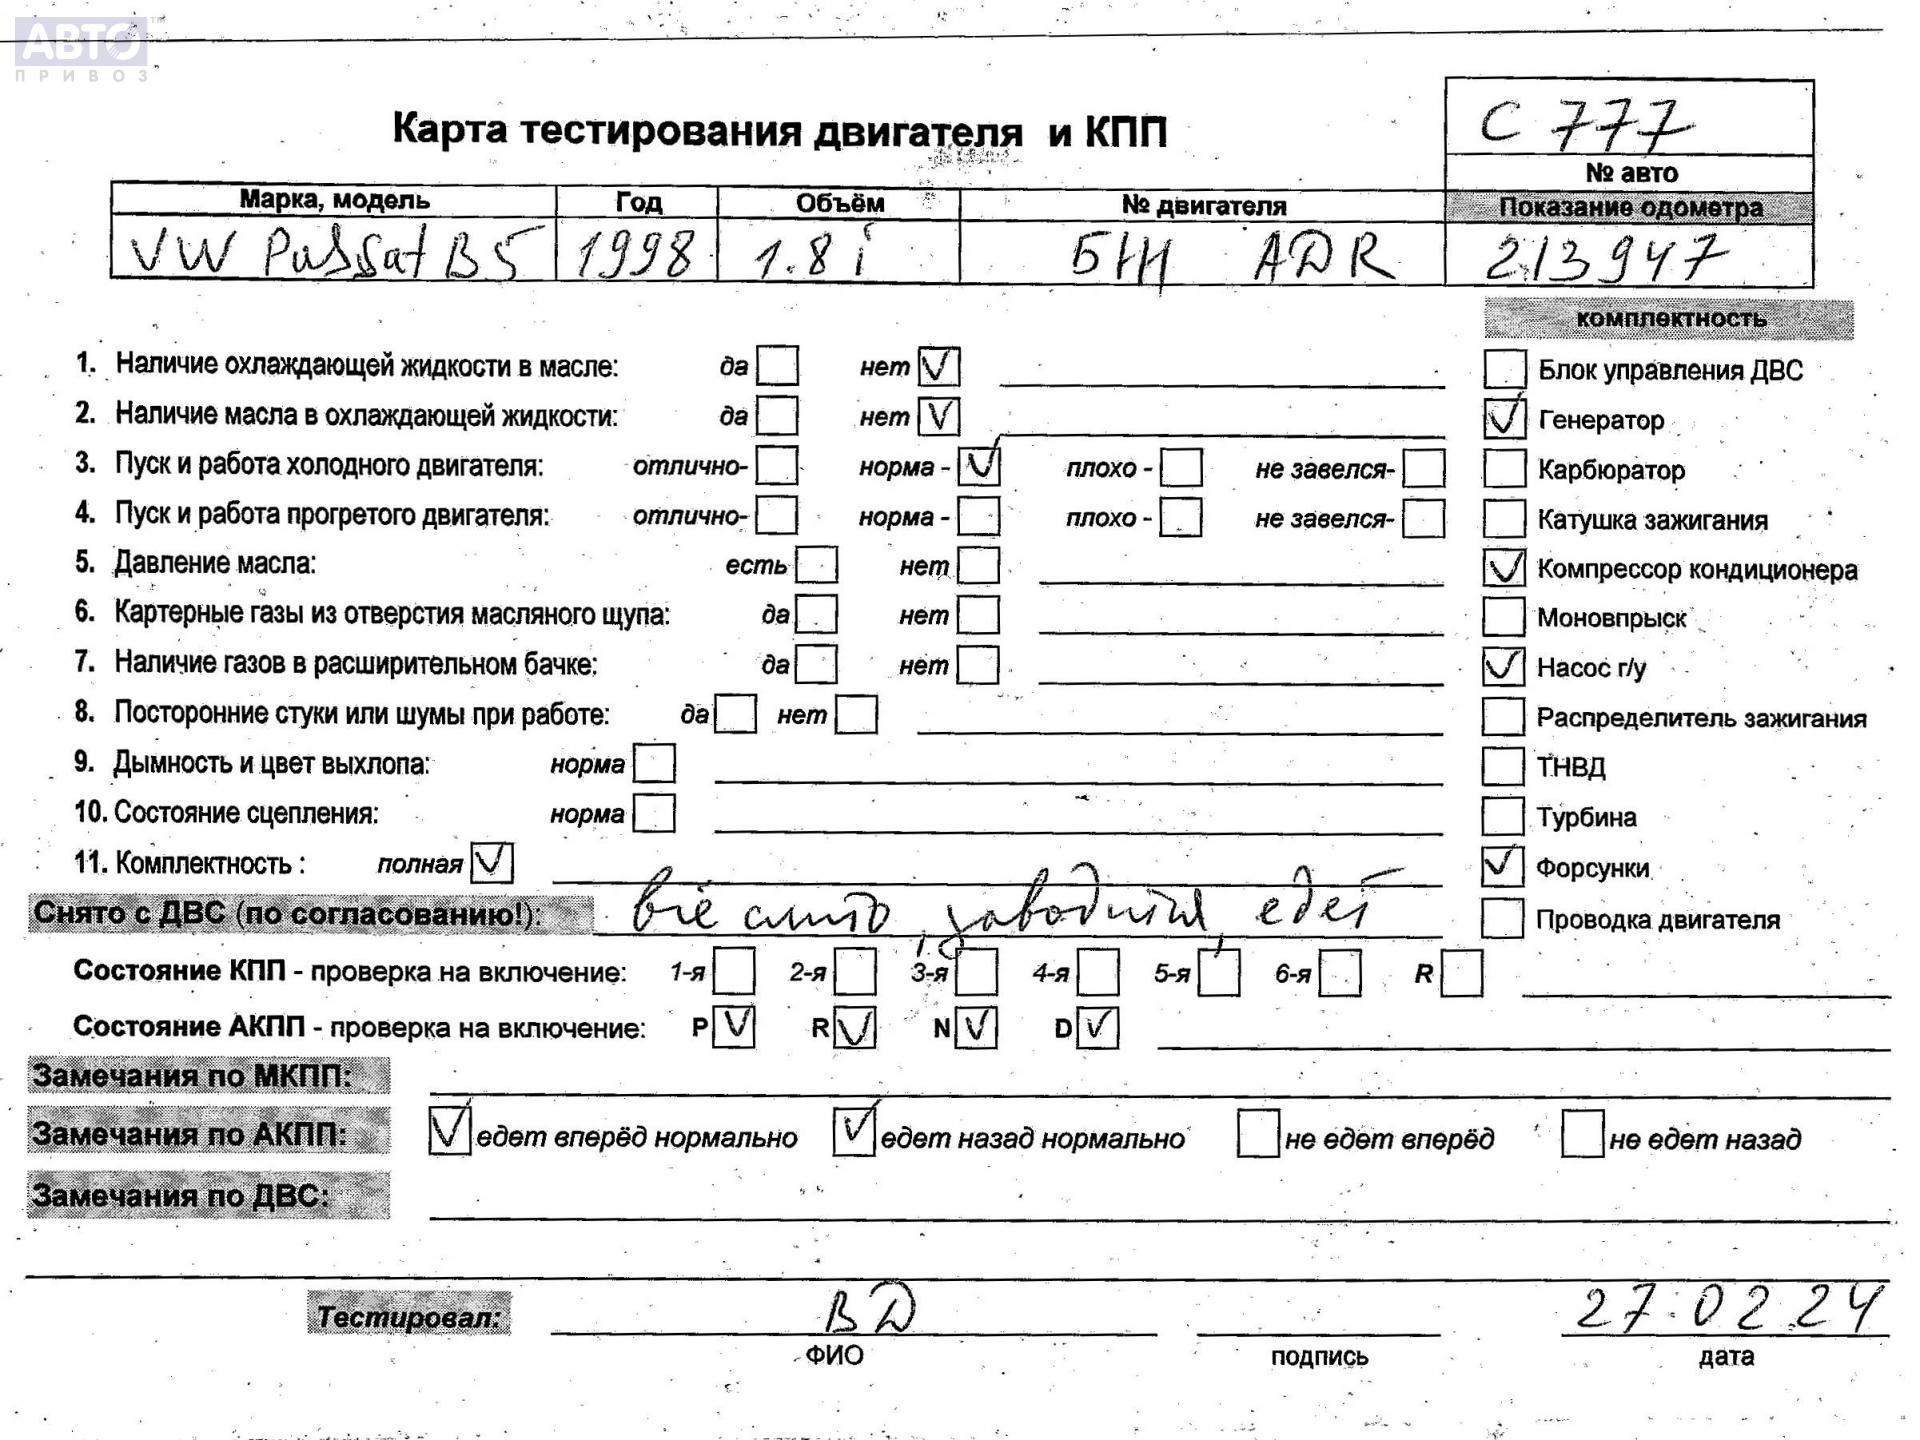 АВТО
ПРИВОЗ
Карта тестирования двигателя и КПП
С 777
№ авто
Марка, модель Год Объём № двигателя Показание одометра
VW Passat B5 1998 1.8 i БН ADR 213947
комплектность
1. Наличие охлаждающей жидкости в масле: да нет Блок управления ДВС
2. Наличие масла в охлаждающей жидкости: да нет Генератор
3. Пуск и работа холодного двигателя: отлично- норма - плохо - не завелся- Карбюратор
4. Пуск и работа прогретого двигателя: отлично- норма - плохо - не завелся- Катушка зажигания
5. Давление масла: есть нет Компрессор кондиционера
6. Картерные газы из отверстия масляного щупа: да нет Моновпрыск
7. Наличие газов в расширительном бачке: да нет Насос г/у
8. Посторонние стуки или шумы при работе: да нет Распределитель зажигания
9. Дымность и цвет выхлопа: норма ТНВД
10. Состояние сцепления: норма Турбина
11. Комплектность : полная Форсунки
Снято с ДВС (по согласованию!): всё снято, заводится, едет Проводка двигателя
Состояние КПП - проверка на включение: 1-я 2-я 3-я 4-я 5-я 6-я R
Состояние АКПП - проверка на включение: P R N D
Замечания по МКПП:
Замечания по АКПП: едет вперёд нормально едет назад нормально не едет вперёд не едет назад
Замечания по ДВС:
Тестировал: ВД 27.02.24
ФИО подпись дата